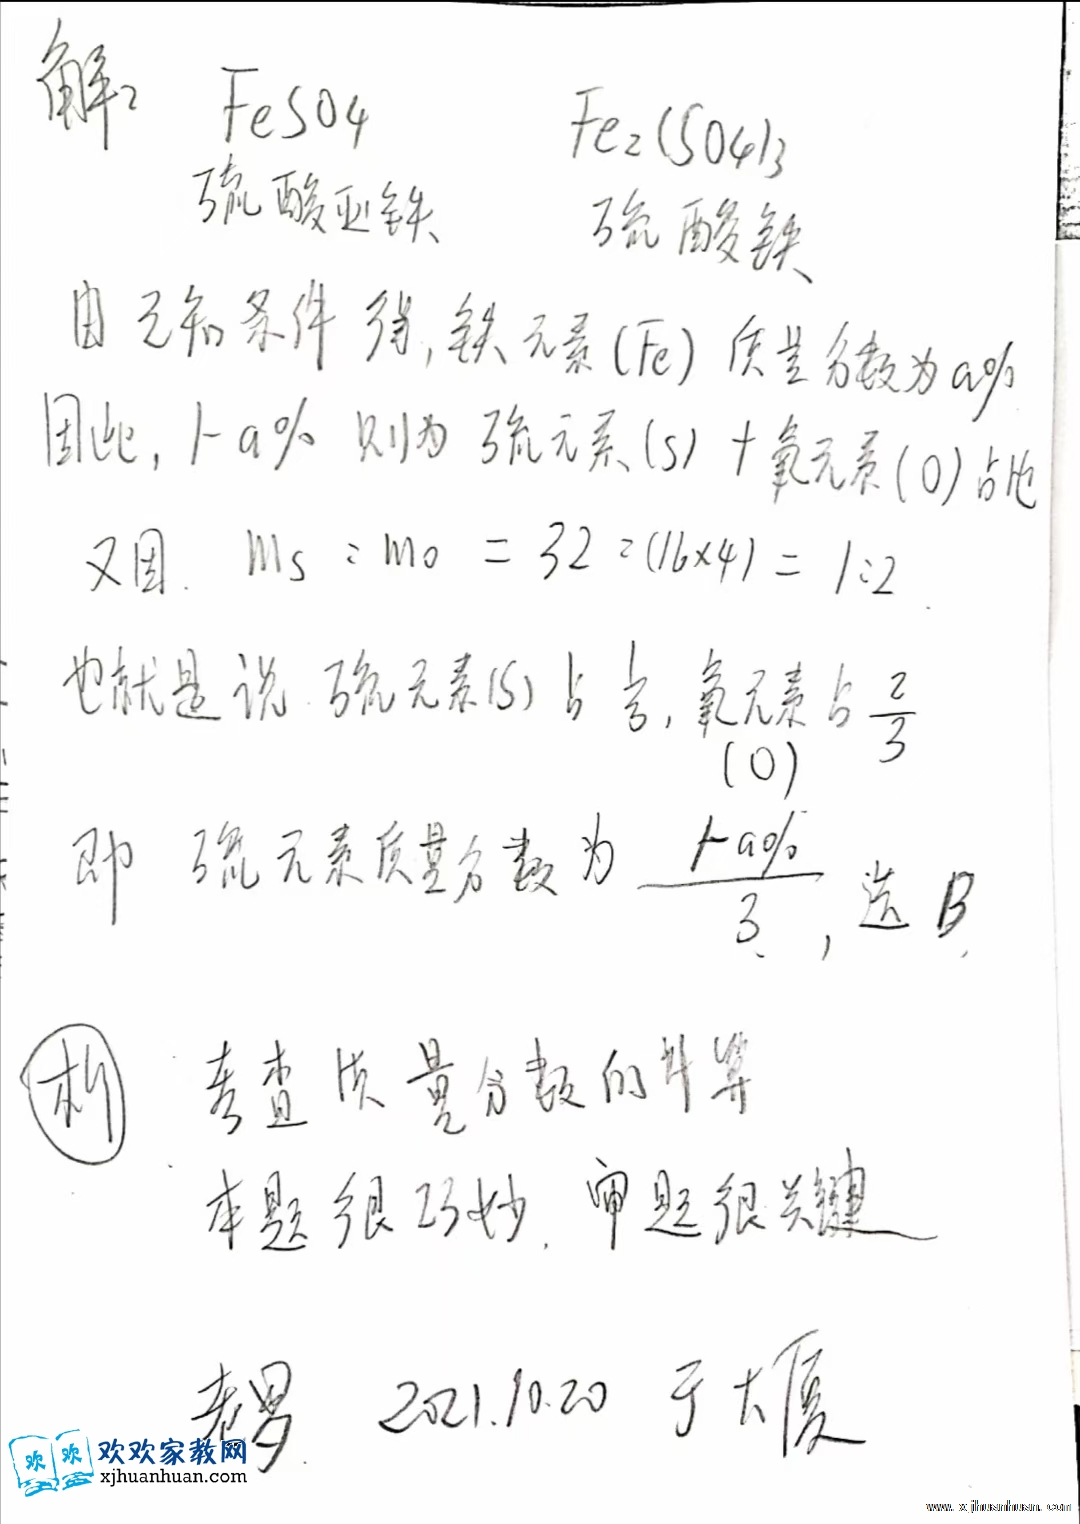 解: FeSO4 Fe2(SO4)3
硫酸亚铁 硫酸铁
由已知条件得,铁元素(Fe)质量分数为a%
因此,1-a% 则为硫元系(S)+氧元素(O)占比
又因. ms:mo = 32:(16×4) = 1:2
也就是说 硫元素(S)占1/3,氧元素占2/3
(O)
即 硫元素质量分数为 1-a%/3 ,选B.
析 考查质量分数的计算
本题很巧妙.审题很关键
2021.10.20 于大厦
欢欢 欢欢家教网
xjhuanhuan.com
www.xjhuanhuan.com